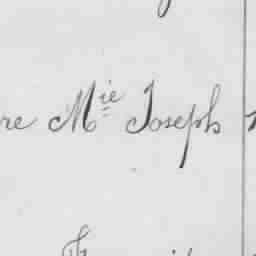 re Mie Joseph